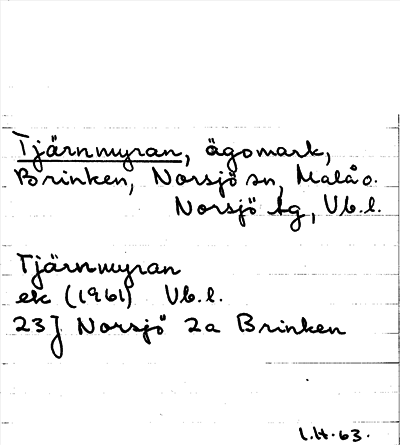 Tjärnmyran, ägomark,
Brinken, Norsjö sn, Malå o.
Norsjö tg, Vb. l.
Tjärnmyran
ek (1961) Vb. l.
23J Norsjö 2a Brinken
L.H. 63.